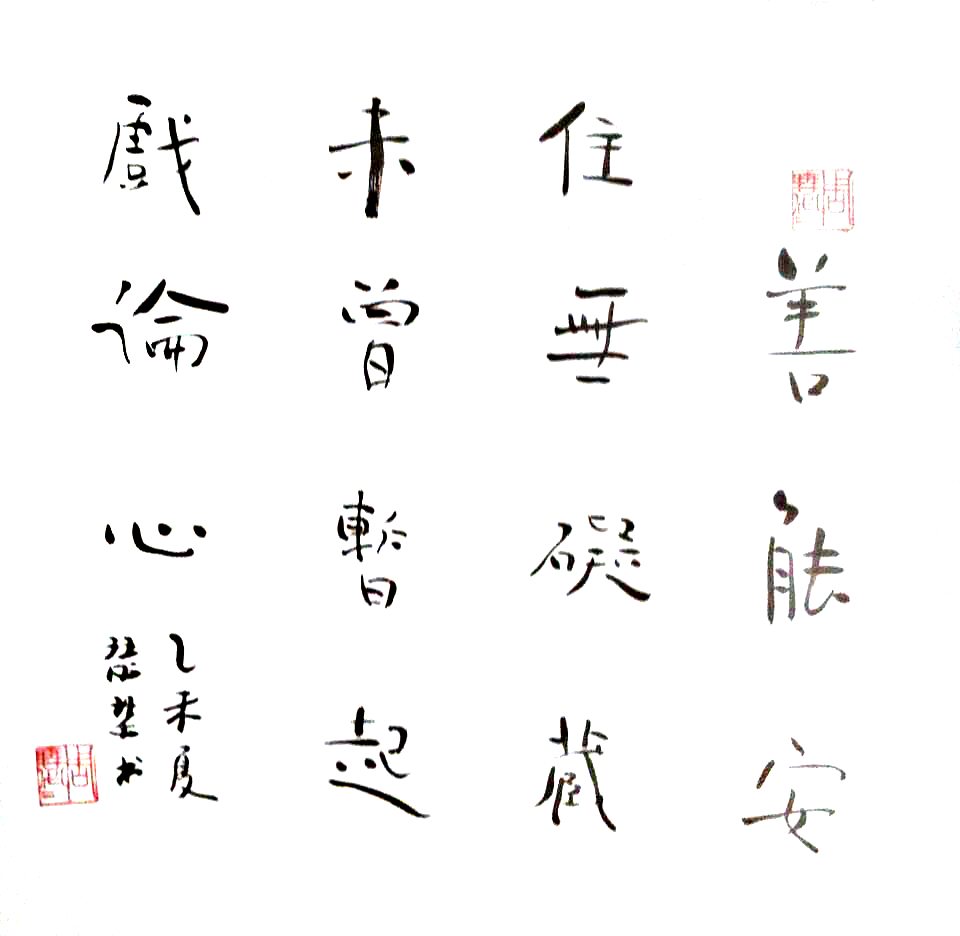 善能安
住無礙藏
未曾暫起
戲論心
乙未夏
書